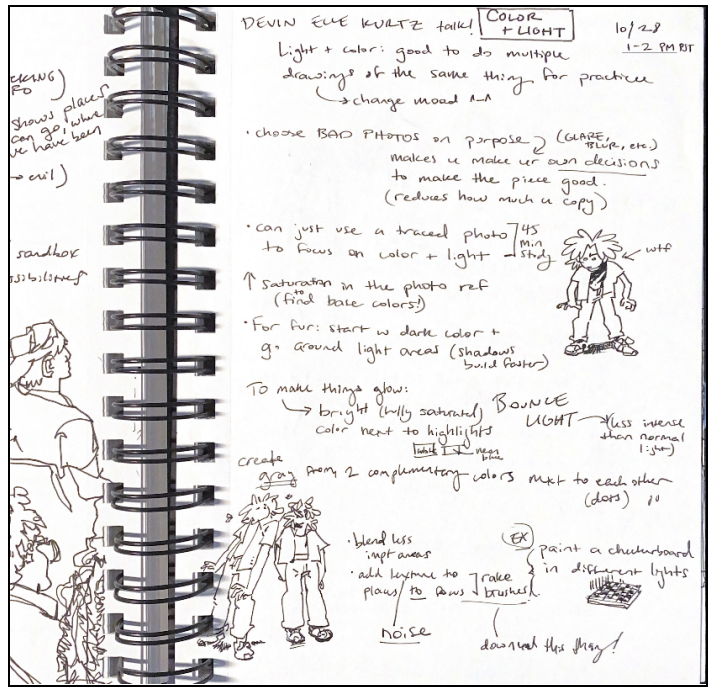 CKING)
FO
shows places
can go, where
ve have been
→ evil)
sandbox
ssibilities
DEVIN ELLE KURTZ talk! COLOR + LIGHT
10/28
1-2 PM PST
Light + color: good to do multiple
drawings of the same thing for practice
→ change mood ^-^
• choose BAD PHOTOS on purpose (GLARE, BLUR, etc.)
makes u make ur own decisions
to make the piece good.
(reduces how much u copy)
• can just use a traced photo
to focus on color + light
45 min study
wtf
↑ saturation in the photo ref
(to find base colors!)
• For fur: start w dark color +
go around light areas (shadows build faster)
To make things glow:
→ bright (fully saturated)
color next to highlights
white
neon blue
BOUNCE LIGHT → (less intense than normal light)
create
gray from 2 complementary colors next to each other
(dots)
• blend less
impt areas
• add texture to
places to focus
rake brushes!
noise
download this thing!
EX
paint a checkerboard
in different lights